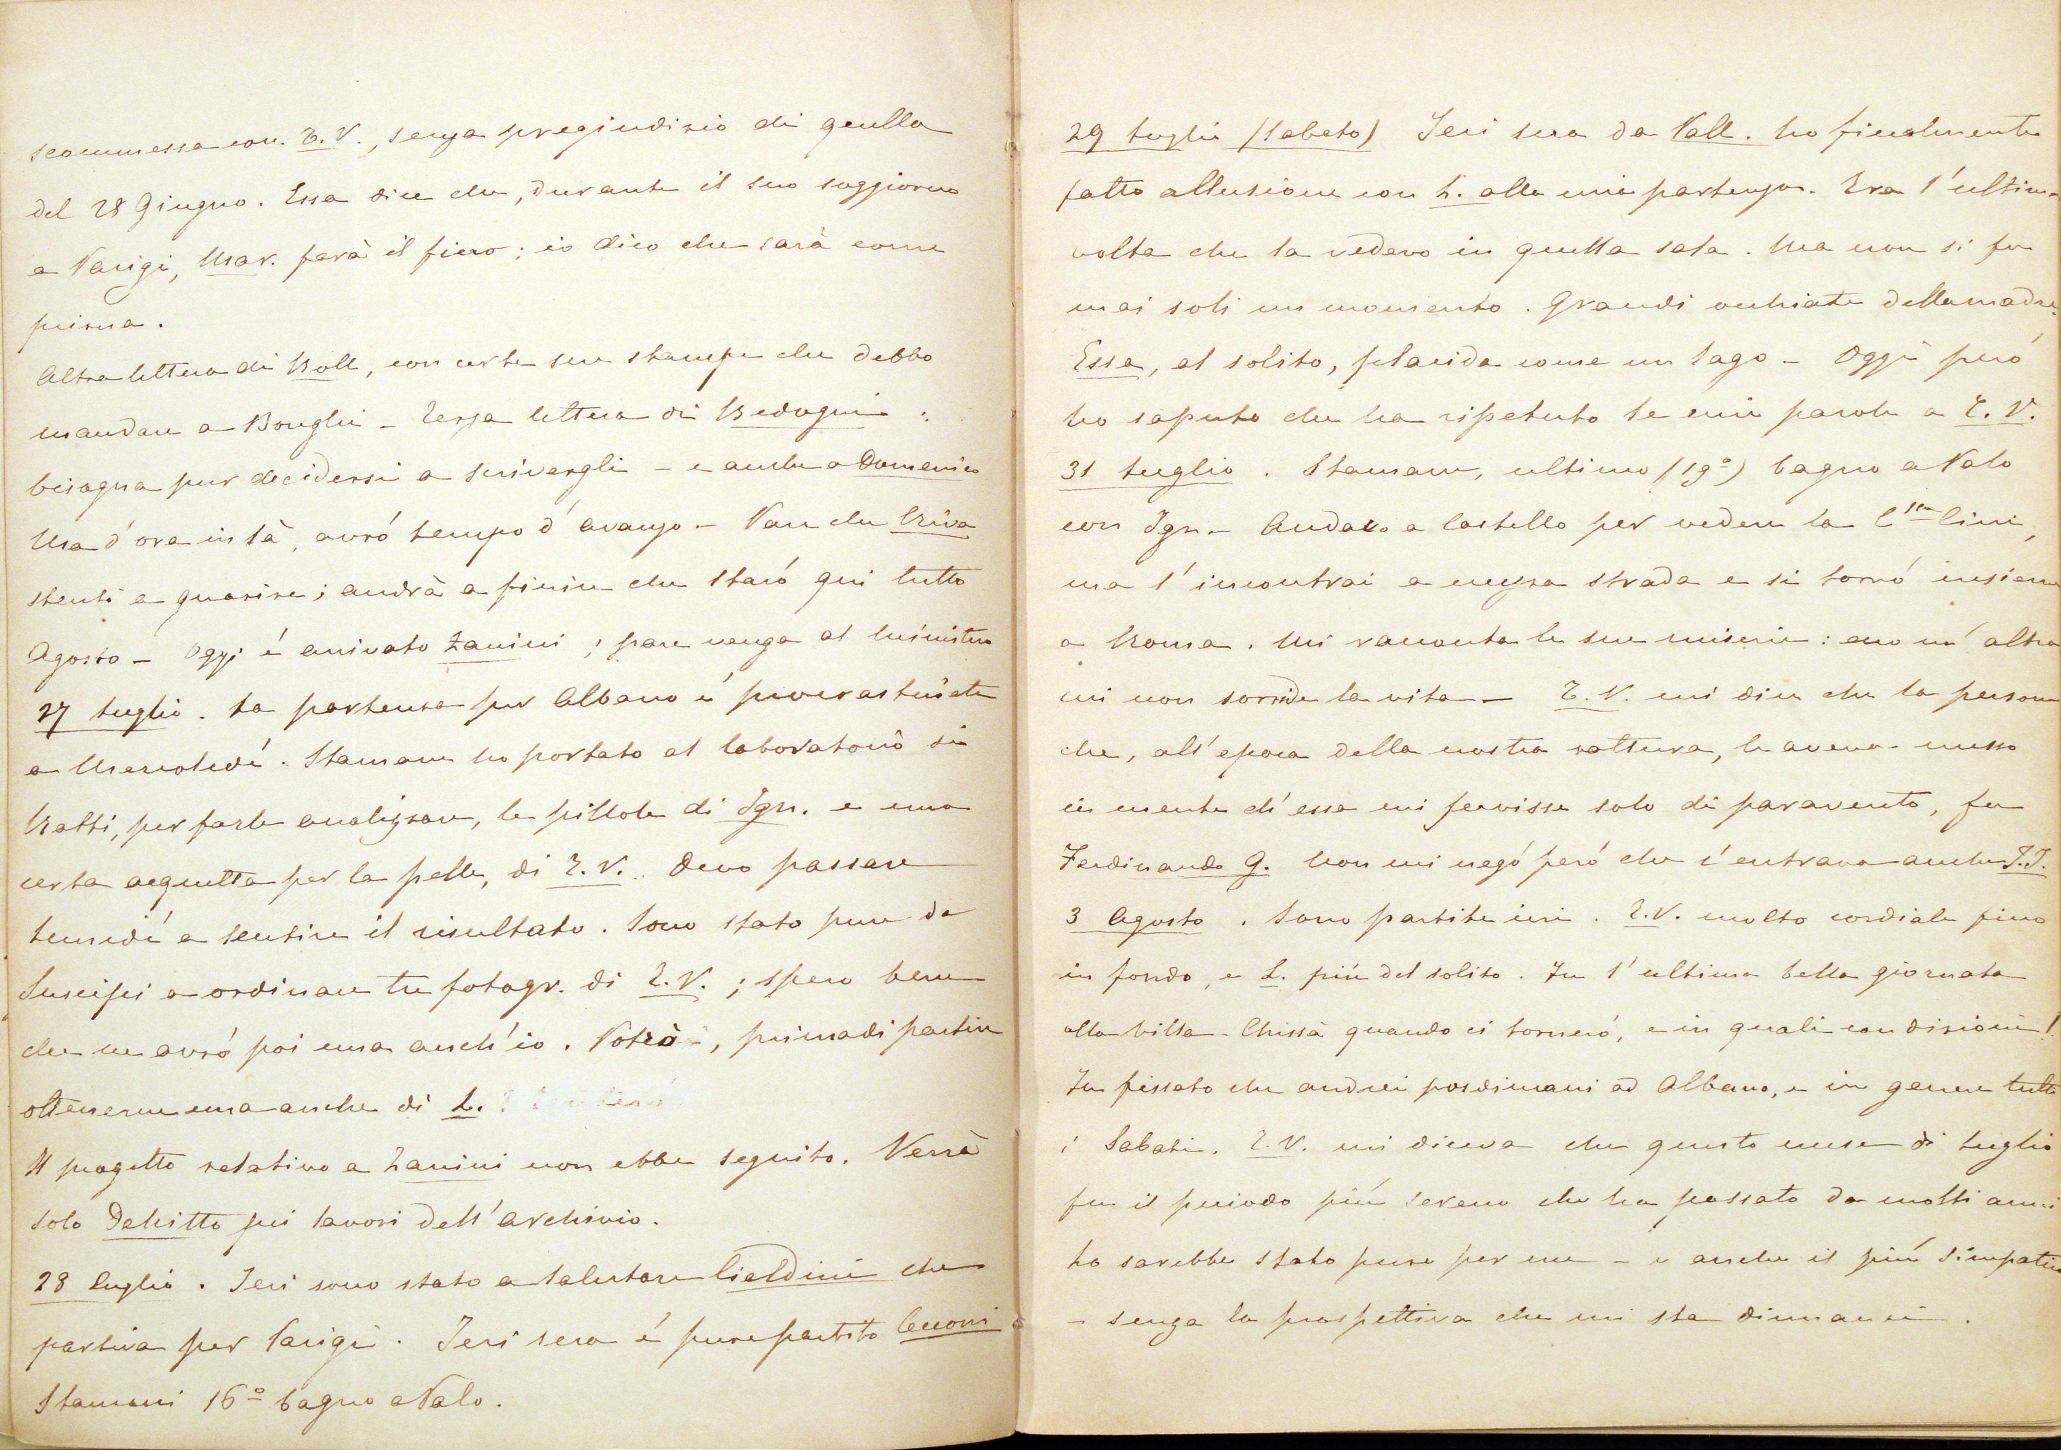 scommessa con E. V., senza pregiudizio di quella
del 28 Giugno. Essa dice che, durante il suo soggiorno
a Parigi, Mar. farà il fiero; io dico che sarà come
prima.
Altra lettera di Noll, con certe sue stampe che debbo
mandare a Bonghi - Terza lettera di Bedogni:
bisogna pur decidersi a scrivergli - e anche a Domenico
Ma d'ora in là, avrò tempo d'avanzo. - Pare che Riva
stenti a guarire; andrà a finire che starò qui tutto
Agosto - Oggi è arrivato Zanini; pare venga al Ministero
27 Luglio. La partenza per Albano è procrastinata
a Mercoledì. Stamane ho portato al laboratorio di
Ratti, per farle analizzare, le pillole di Ign. e una
certa acquetta per la pelle, di E. V. Devo passare
lunedì a sentire il risultato. Sono stato pure da
Suscipi a ordinare tre fotogr. di E. V.; spero bene
che ne avrò poi una anch'io. Potrò, prima di partire
ottenerne una anche di L.
Il progetto relativo a Zanini non ebbe seguito. Verrà
solo Dehitto pei lavori dell'archivio.
28 Luglio. Ieri sono stato a salutare Cialdini che
partiva per Parigi. Ieri sera è pure partito Cecconi
Stamani 16º bagno a Palo.
29 Luglio (Sabato) Ieri sera da Vall. ho finalmente
fatto allusione con L. alla mia partenza. Era l'ultima
volta che la vedevo in quella sala. Ma non si fu
mai soli un momento. Grandi occhiate della madre.
Essa, al solito, placida come un lago - Oggi però
ho saputo che ha ripetuto le mie parole a E. V.
31 Luglio. Stamane, ultimo (19º) bagno a Palo
con Ign. - Andavo a Castello per vedere la Cssa Cini,
ma l'incontrai a mezza strada e si tornò insieme
a Roma. Mi racconta le sue miserie: ecco un'altra
cui non sorride la vita - E. V. mi dice che la persona
che, all'epoca della nostra rottura, le aveva messo
in mente ch'essa mi servisse solo di paravento, fu
Ferdinando G. Non mi negò però che c'entrava anche T.T.
3 Agosto. Sono partite ieri. E. V. molto cordiale fino
in fondo, e L. più del solito. Fu l'ultima bella giornata
alla villa - Chissà quando ci tornerò, e in quali condizioni!
Fu fissato che andrei posdimani ad Albano, e in genere tutti
i Sabati. E. V. mi diceva che questo mese di Luglio
fu il periodo più sereno che ha passato da molti anni
Lo sarebbe stato pure per me - e anche il più simpatico
- senza la prospettiva che mi sta dinnanzi.